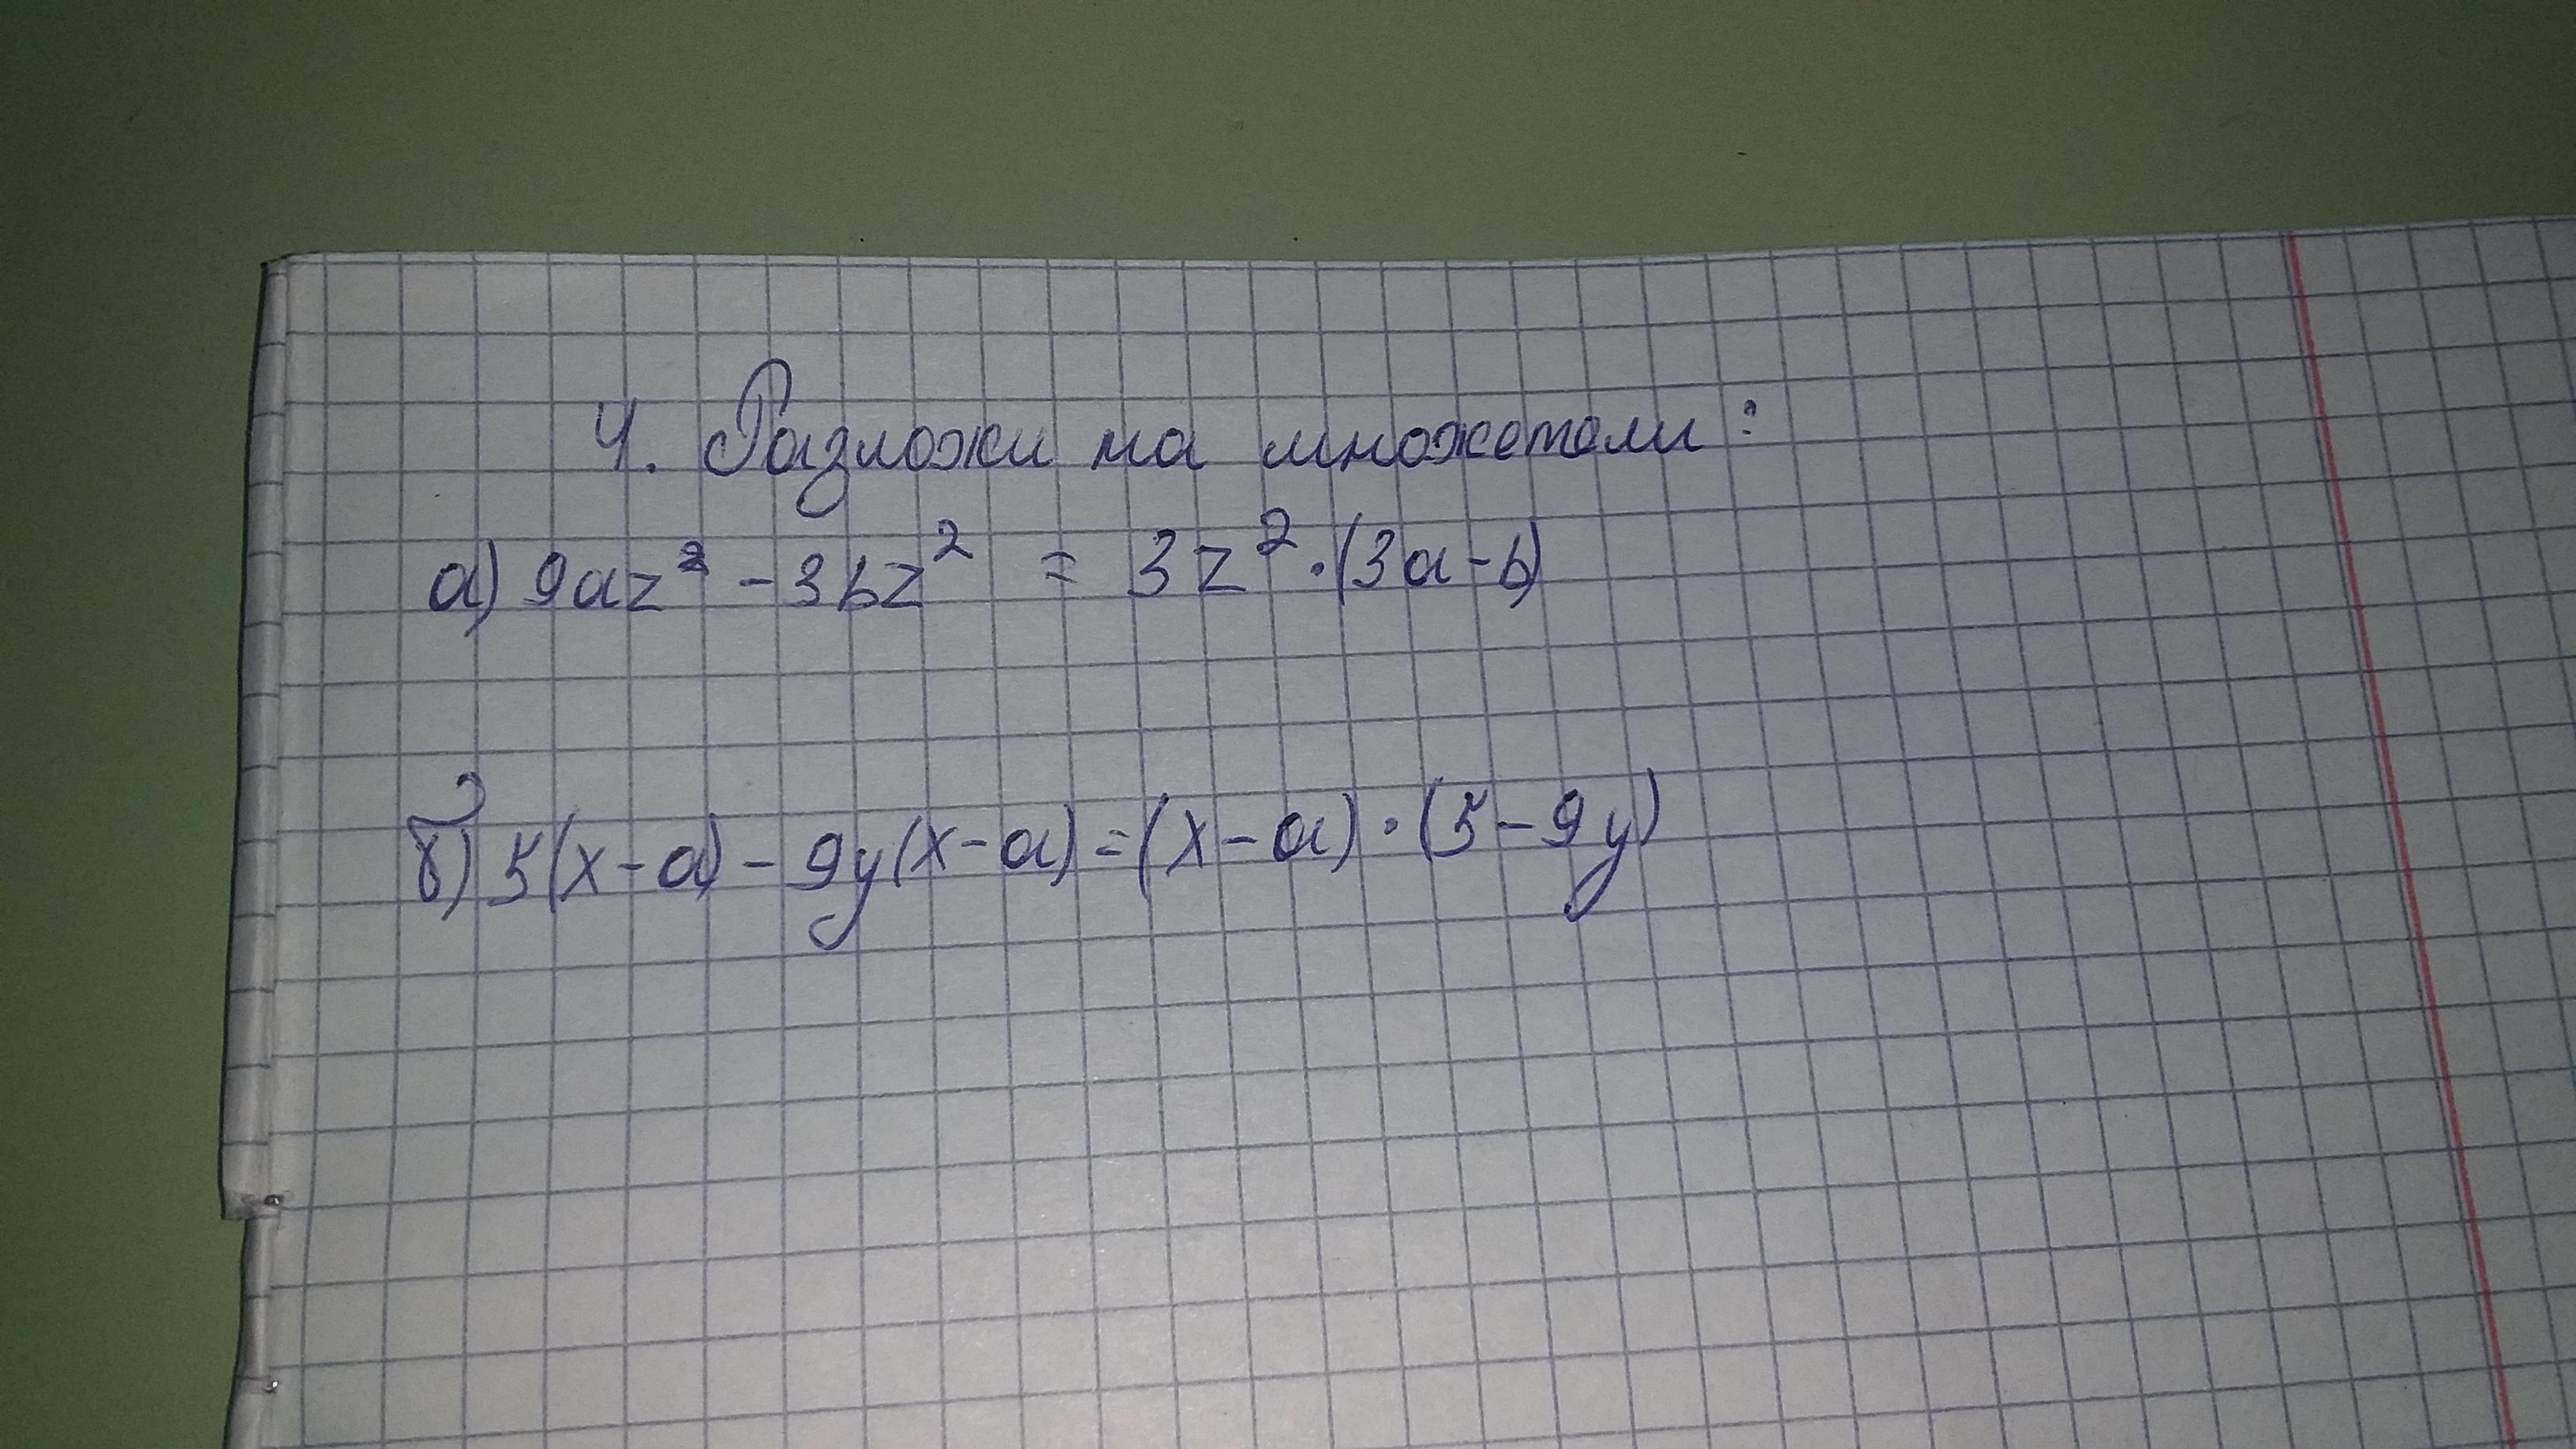 4. Разложи на множетели:
а) 9az² - 3bz² = 3z² · (3a - b)
б) 5(x - a) - 9y(x - a) = (x - a) · (5 - 9y)